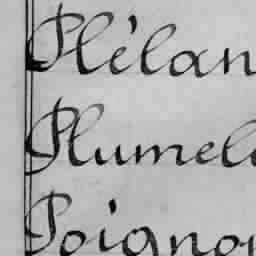 Plélan
Plumel
Poigno